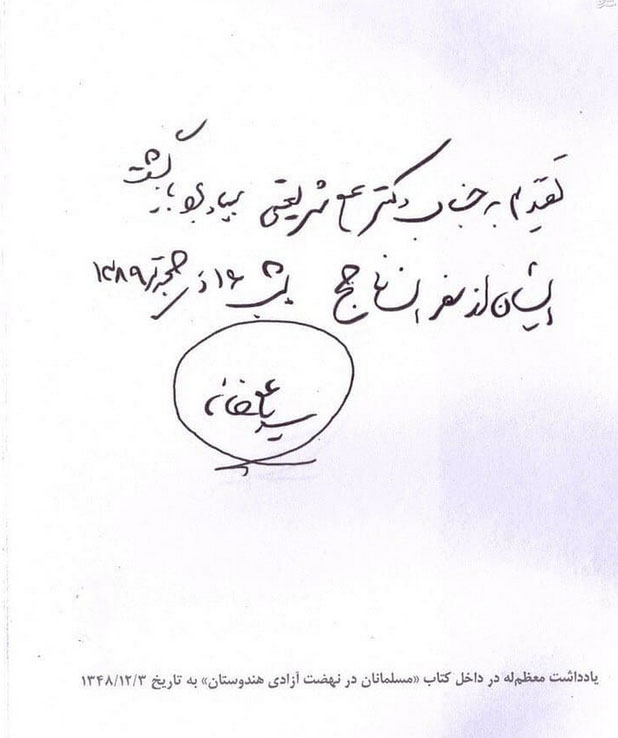 تقدیم به جناب دکتر علی شریعتی بیادبود بازگشت
ایشان از سفر انسانساز حج شب ۱۶ ذیحجة ۱۳۸۹
سید علی خامنه‌ای
یادداشت معظم‌له در داخل کتاب «مسلمانان در نهضت آزادی هندوستان» به تاریخ ۱۳۴۸/۱۲/۳